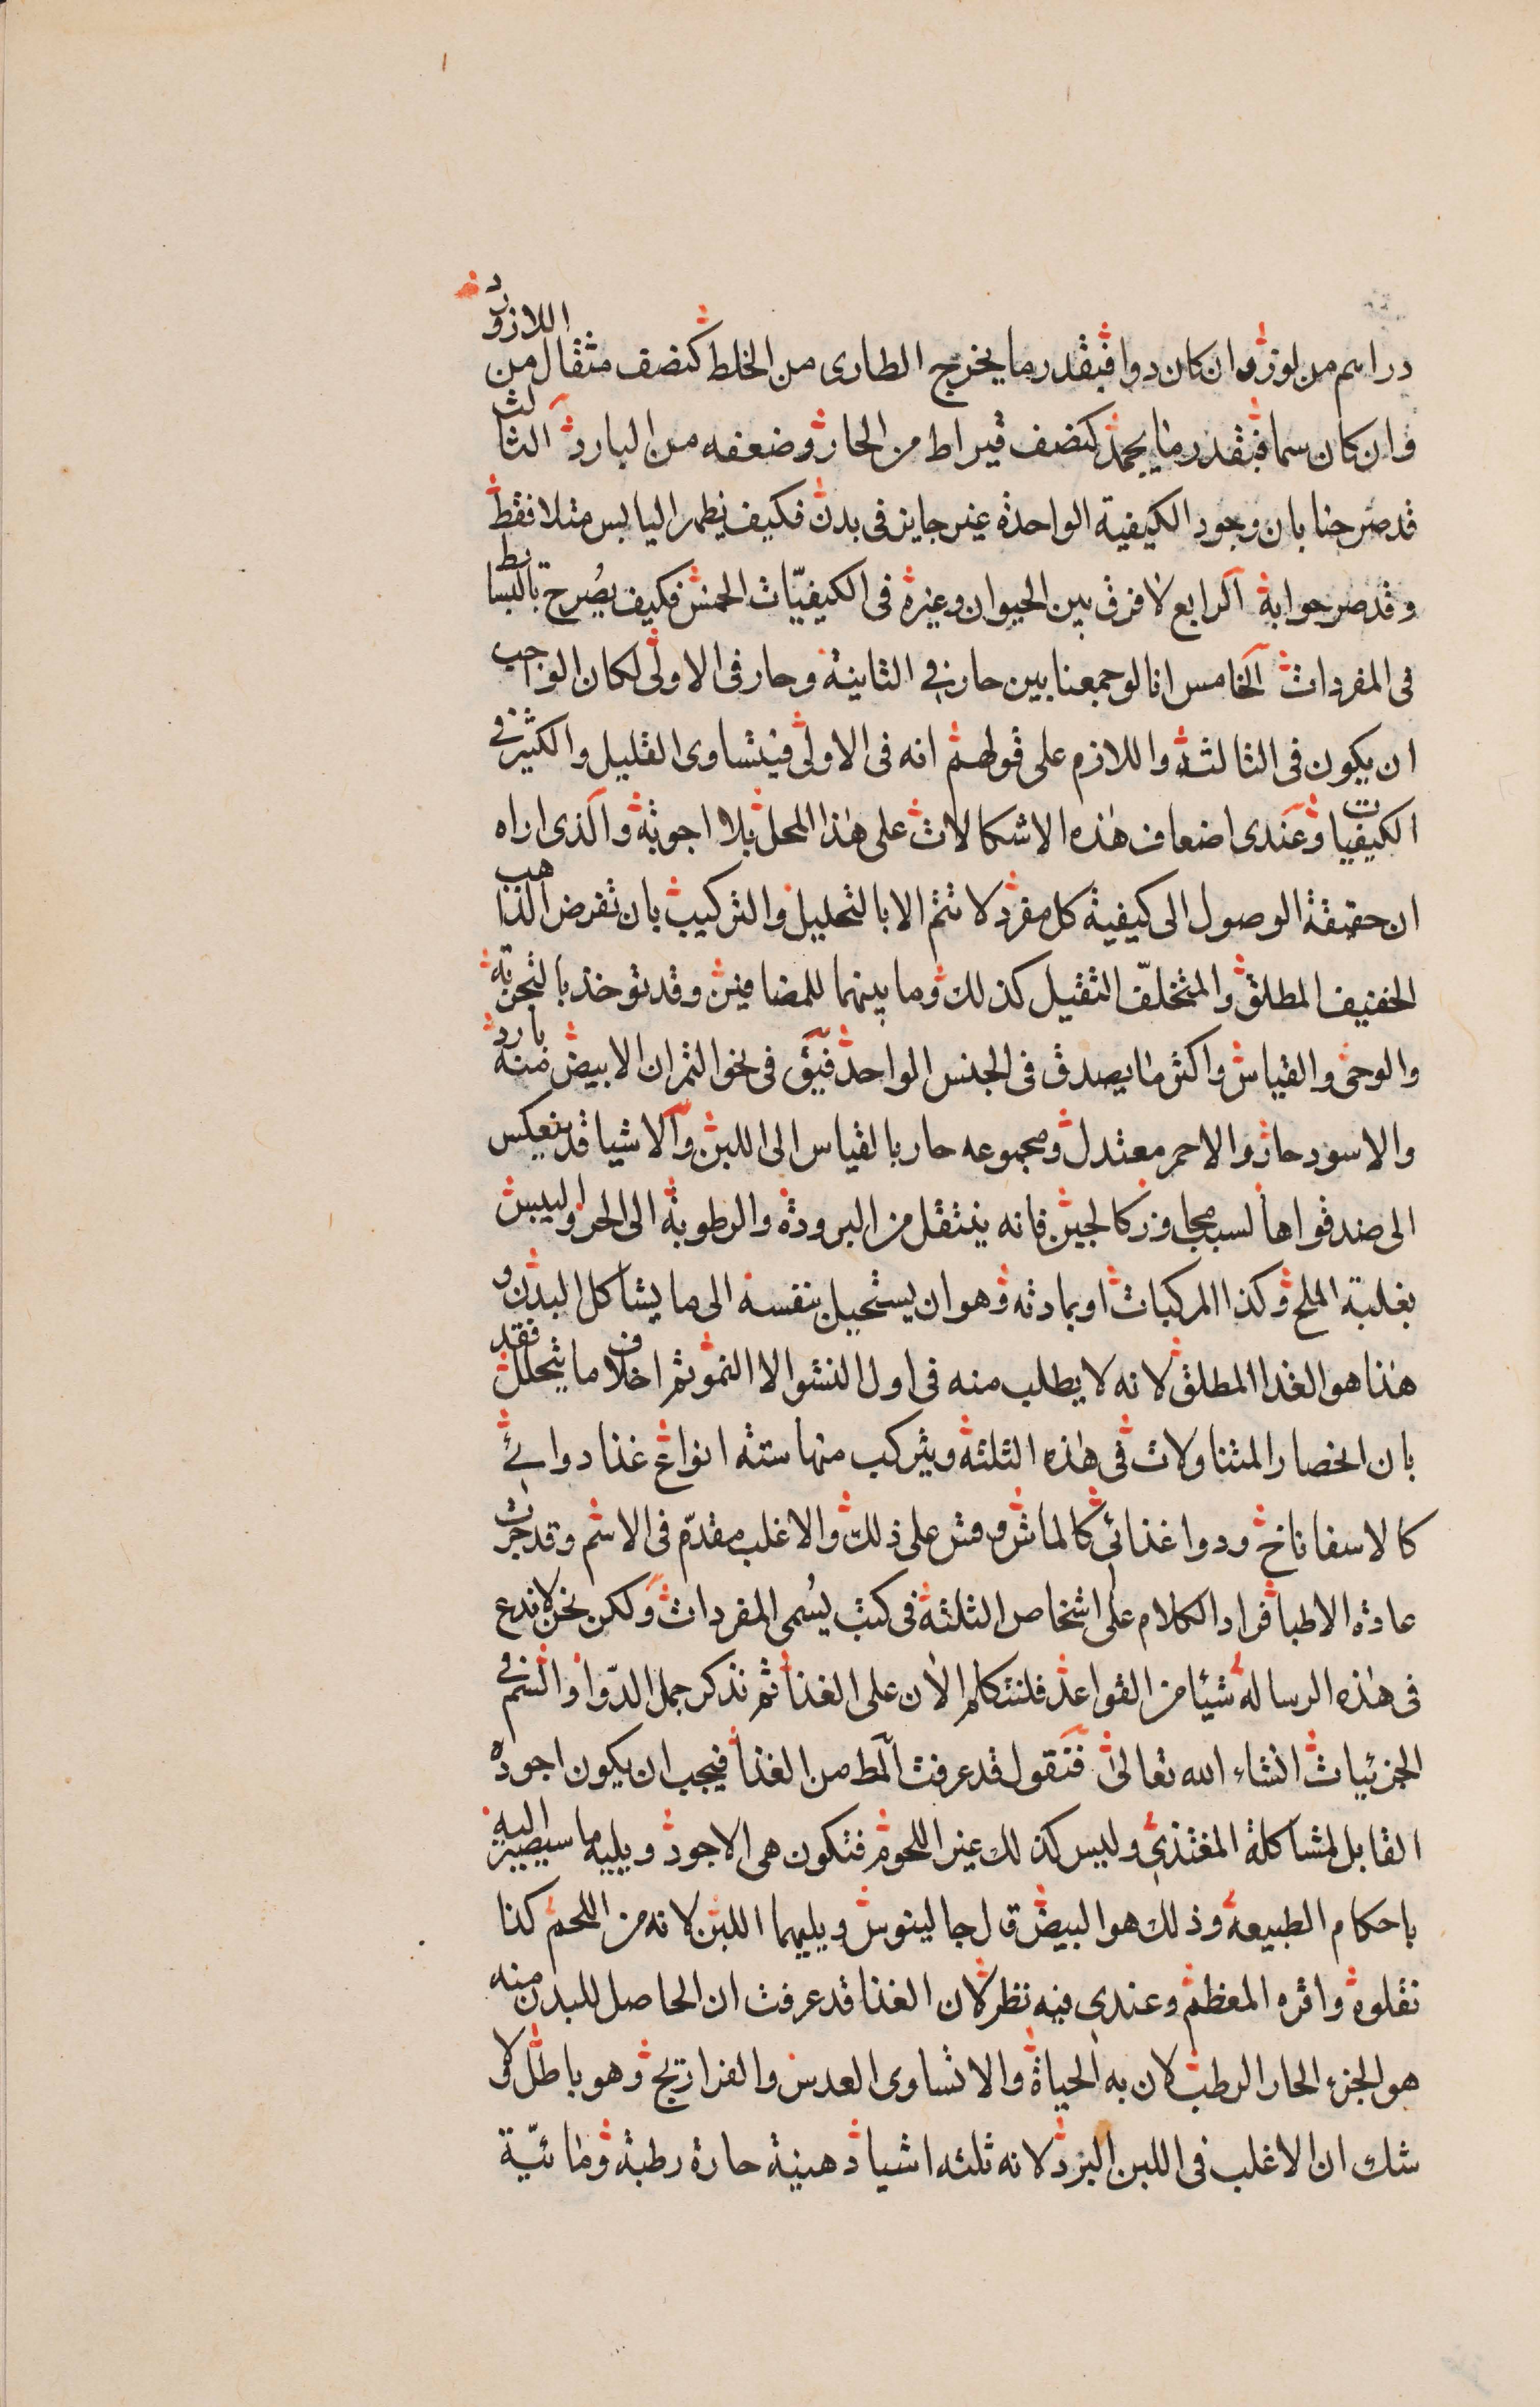 دراسم من لوز وان كان دوا فبقدر ما يخرج الطارى من الخلط كنصف مثقال من اللازورد
وان كان سما فبقدر ما يجمد كنصف قيراط من الحار وضعفه من البارد الثالث
قد صرحنا بان وجود الكيفية الواحدة غير جايز فى بدن فكيف يظهر اليابس مثلا فقط
وقد صر جوابه الرابع لا فرق بين الحيوان وغيره فى الكيفيّات الخمس فكيف يصُرح بالبسايط
فى المفردات الخامس انا لو جمعنا بين حار في الثانية وحار فى الاولى لكان الواجب
ان يكون فى الثالثة واللازم على قولهم انه فى الاولى فيتساوى القليل والكثير في
الكيفيات وعندى اضعاف هذه الاشكالات على هذا المحل بلا اجوبة والذى اراه
ان حقيقة الوصول الى كيفية كل مفرد لا تتم الا بالتحليل والتركيب بان تفرض الذاهب
الخفيف المطلق والمتخلّف الثقيل كذلك وما بينهما للمضافين وقد توخذ بالتجربة
والوحى والقياس واكثر ما يصدق فى الجنس الواحد فيق فى نحو الثمر ان الابيض منه بارد
والاسود حار والاحمر معتدل ومجموعه حار بالقياس الى اللبن والاشيا قد ينعكس
الى ضد قواها لسبب مجاوز كالجبن فانه ينتقل من البرودة والرطوبة الى الحر واليبس
بغلبة الملح وكذا المركبات او بمادته وهو ان يستحيل بنفسه الى ما يشاكل البدن و
هذا هو الغذا المطلق لانه لا يطلب منه فى اول النشو الا النمو ثم اخلاف ما يتحلل فقد
بان انحصار المتناولات فى هذه الثلثة ويتركب منها ستة انواع غذا دوائي
كالاسفاناخ ودوا غذائي كالماش وقس على ذلك والاغلب مقدّم فى الاسم وقد جرت
عادة الاطبا فراد الكلام على اشخاص الثلثة فى كتب يُسمى المفردات ولكن نحن لا ندع
فى هذه الرسالة شيئا من القواعد فلنتكلم الان على الغذا ثم نذكر جمل الدّوا والسم في
الجزئيات انشاء الله تعالى فنقول قد عرفت المط من الغذا فيجب ان يكون اجوده
القابل لمشاكلة المغتذي وليس كذلك غير اللحوم فتكون هى الاجود ويليه ما سيصير اليه
باحكام الطبيعة وذلك هو البيض ق ل جالينوس ويليهما اللبن لانه من اللحم كذا
نقلوه واقره المعظم وعندى فيه نظر لان الغذا قد عرفت ان الحاصل للبدن منه
هو الجزء الحار الرطب لان به الحياة والا تساوى العدس والفراريج وهو باطل ولا
شك ان الاغلب فى اللبن البرد لانه ثلثه اشيا دهنية حارة رطبة ومائيّة